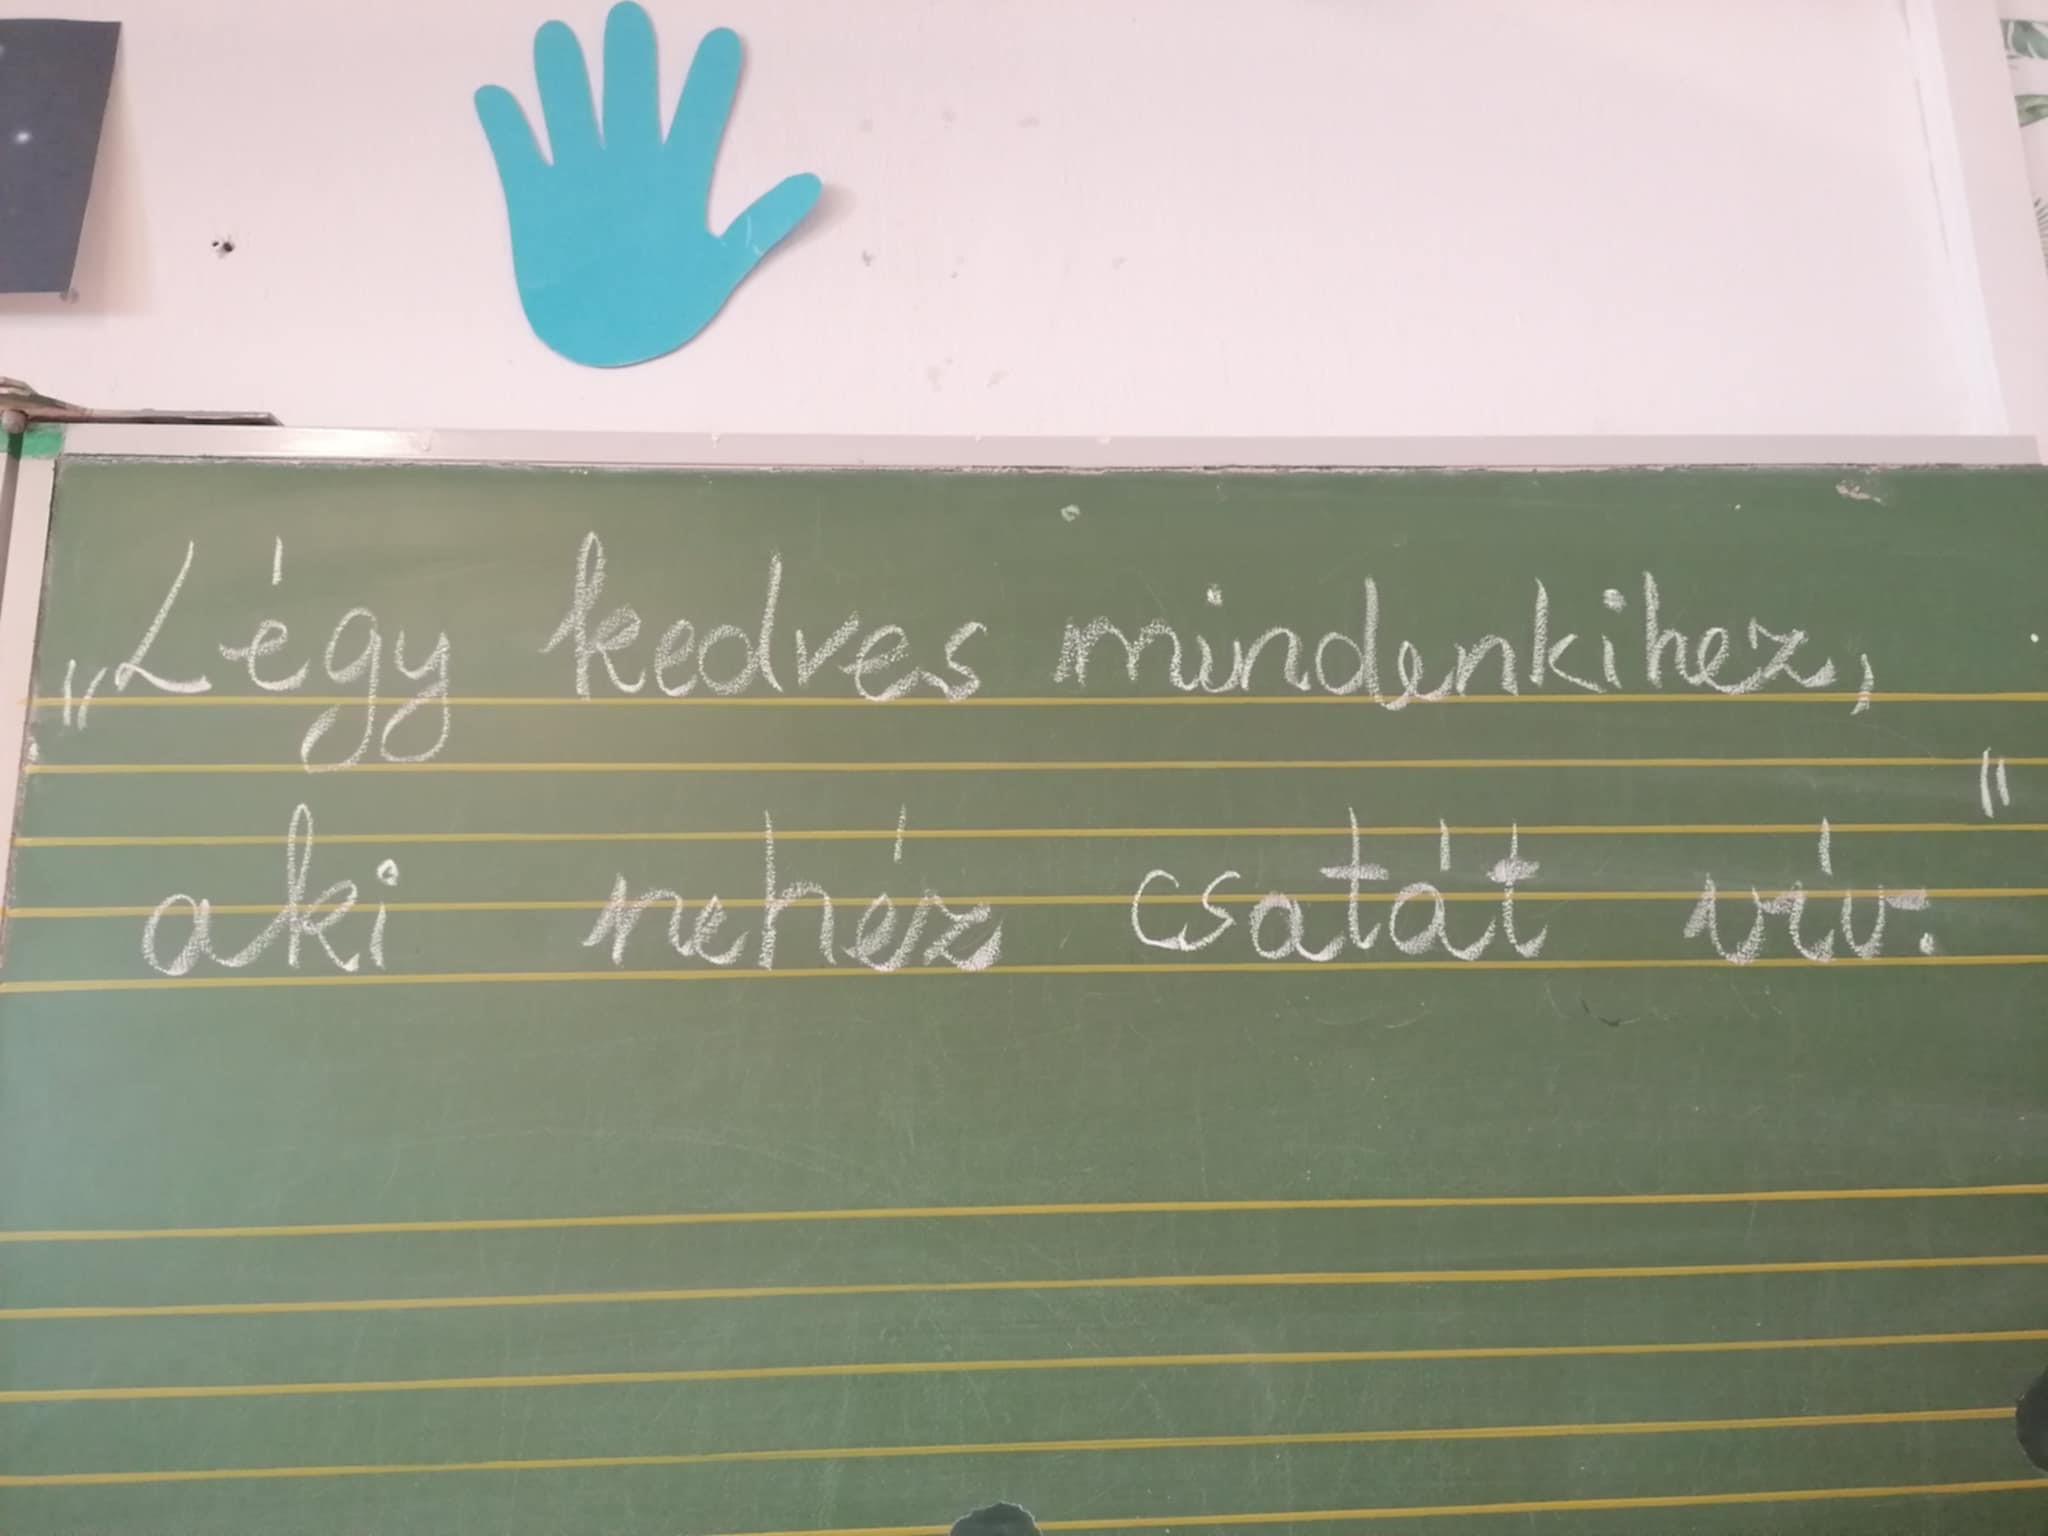 „Légy kedves mindenkihez,
aki nehéz csatát vív.”